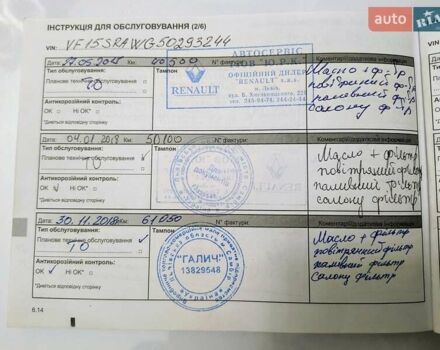 ІНСТРУКЦІЯ ДЛЯ ОБСЛУГОВУВАННЯ (2/6)
AUTO
RIA
VIN: VF15SRAWG50293244
Дата: 27.05.2015 Км: 40500 № фактури:
Тип обслуговування: Тампон Коментар/додаткова інформація
Планове технічне обслуговування
ТО
АВТОСЕРВІС
ТОВ "Ю.Р.К."
ОФІЦІЙНИЙ ДИЛЕР
"RENAULT"
м. Львів,
RENAULT
Масло + ф-тр
повітряний ф-тр
паливний ф-тр
салону ф-тр
Антикорозійний контроль:
OK Ні OK*
*Дивіться відповідну сторінку
Дата: 04.01.2018 Км: 50100 № фактури:
Тип обслуговування: Тампон Коментар/додаткова інформація
Планове технічне обслуговування
ТО
RENAULT
Масло + фільтр
повітряний фільтр
паливний фільтр
салону фільтр
Антикорозійний контроль:
OK Ні OK*
*Дивіться відповідну сторінку
Дата: 30.11.2018 Км: 61050 № фактури:
Тип обслуговування: Тампон Коментар/додаткова інформація
Планове технічне обслуговування
ТО
"ГАЛИЧ"
13829548
Масло + фільтр
повітряний фільтр
паливний фільтр
салону фільтр
Антикорозійний контроль:
OK Ні OK*
*Дивіться відповідну сторінку
6.14